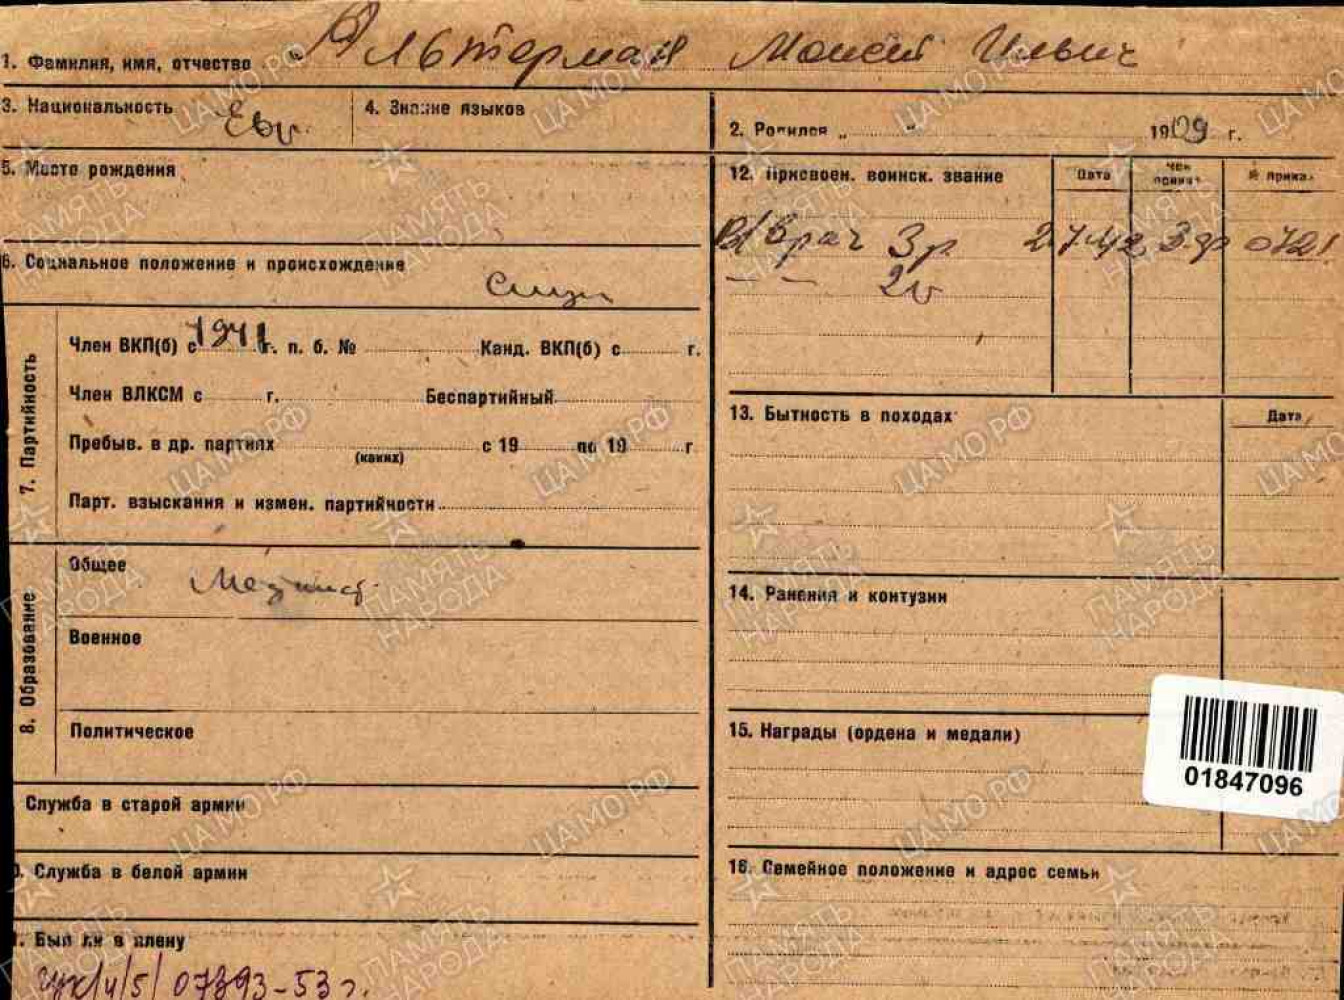 1. Фамилия, имя, отчество Альтерман Моисей Ильич
3. Национальность Евр.
4. Знание языков
2. Родился „ “ 1909 г.
5. Место рождения
12. Присвоен. воинск. звание
Дата
Чей приказ
№ приказ.
В/врач 3 р. 2.7.42 3 уд 0721
— — 2 р
6. Социальное положение и происхождение
Служ
7. Партийность
Член ВКП(б) с 1941 г. п. б. № Канд. ВКП(б) с г.
Член ВЛКСМ с г. Беспартийный
Пребыв. в др. партиях с 19 по 19 г
(каких)
Парт. взыскания и измен. партийности
13. Бытность в походах
Дата
8. Образование
Общее Мединст.
Военное
Политическое
14. Ранения и контузии
15. Награды (ордена и медали)
01847096
Служба в старой армии
0. Служба в белой армии
16. Семейное положение и адрес семьи
1. Был ли в плену
07393-53 г.
ПАМЯТЬ НАРОДА
ЦАМО РФ